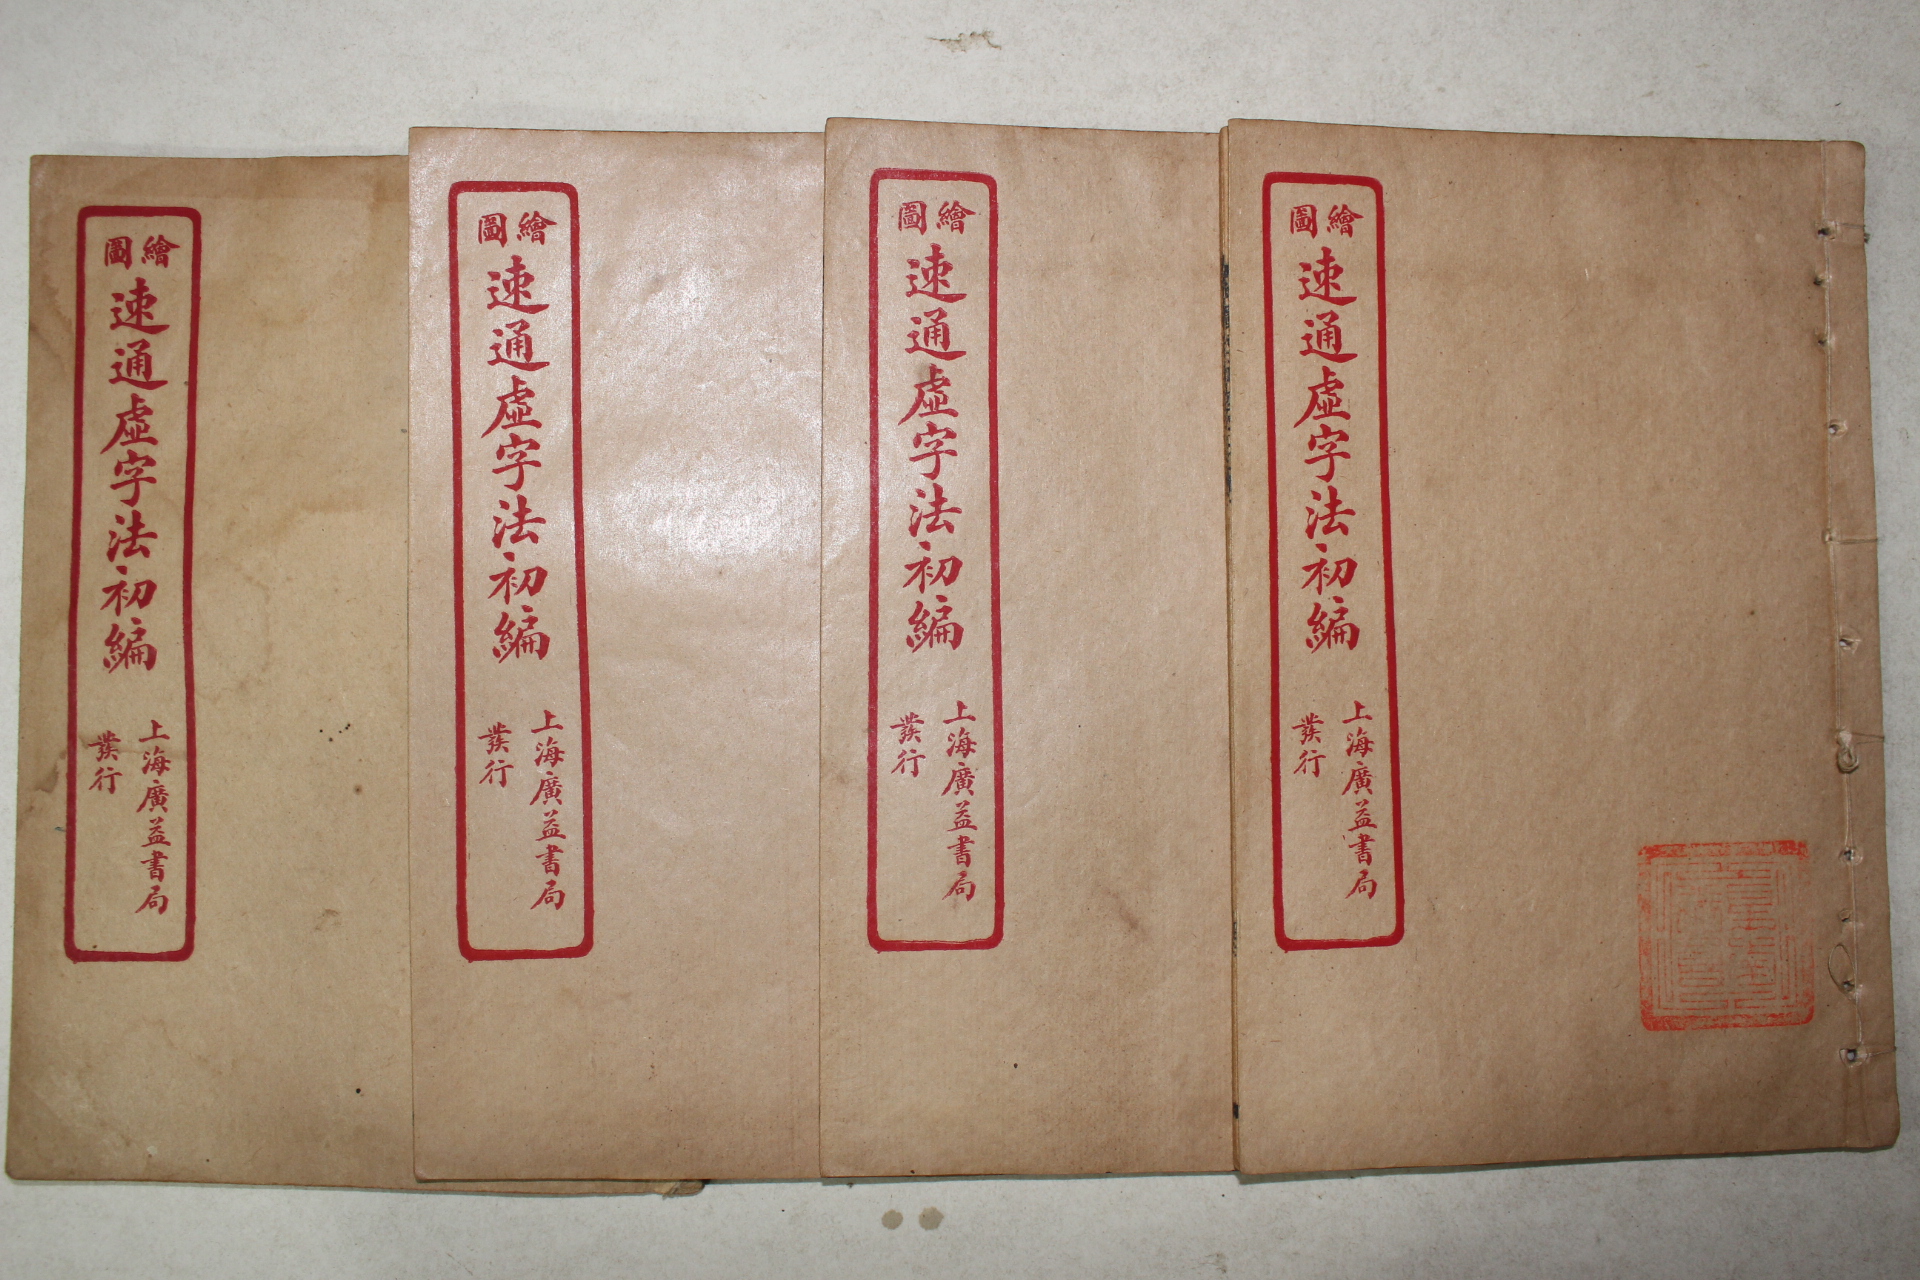 繪圖
速通虛字法初編
上海廣益書局
發行
繪圖
速通虛字法初編
上海廣益書局
發行
繪圖
速通虛字法初編
上海廣益書局
發行
繪圖
速通虛字法初編
上海廣益書局
發行